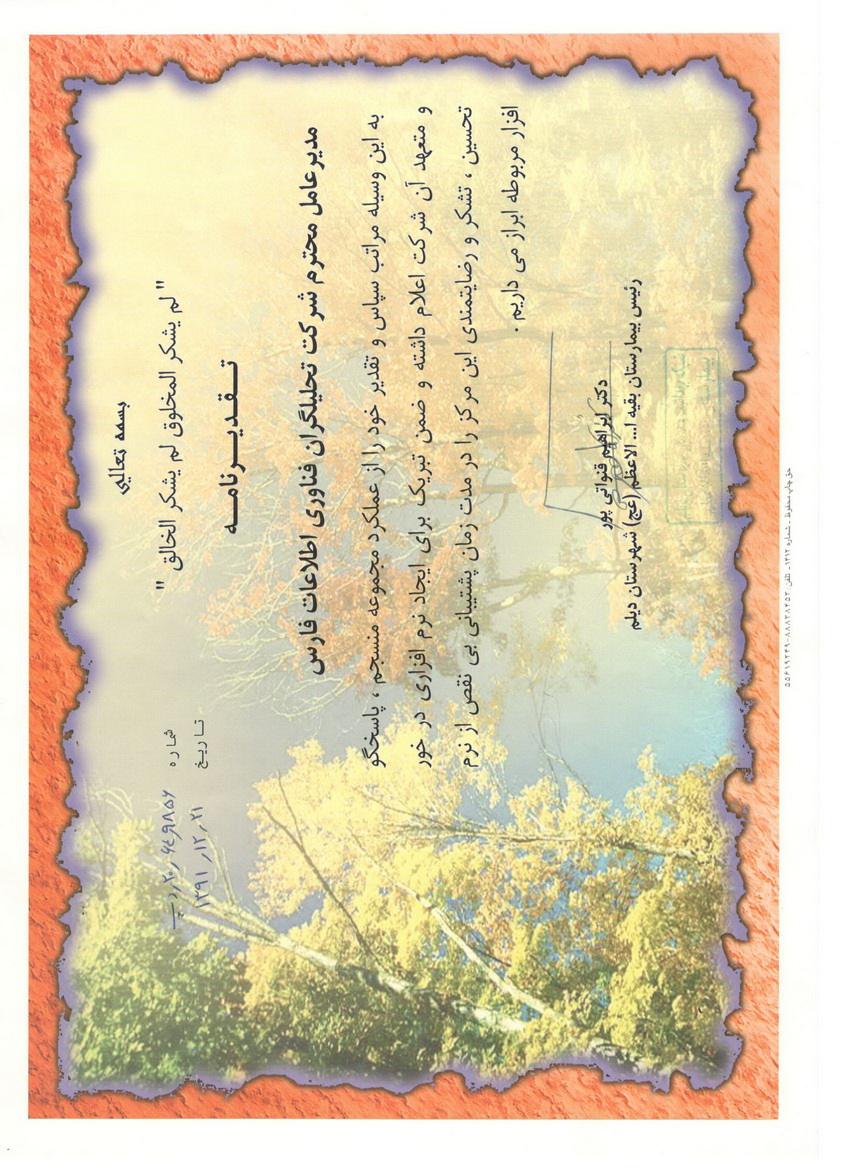 بسمه تعالی
" لم یشکر المخلوق لم یشکر الخالق "
شماره
تاریخ ۱۳۹۱/۱۲/۲۱
تـقـدیـرنامـه
مدیرعامل محترم شرکت تحلیلگران فناوری اطلاعات فارس
به این وسیله مراتب سپاس و تقدیر خود را از عملکرد مجموعه منسجم ، پاسخگو
و متعهد آن شرکت اعلام داشته و ضمن تبریک برای ایجاد نرم افزاری در خور
تحسین ، تشکر و رضایتمندی این مرکز را در مدت زمان پشتیبانی بی نقص از نرم
افزار مربوطه ابراز می داریم .
دکتر ابراهیم قنواتی پور
رئیس بیمارستان بقیه ا... الاعظم (عج) شهرستان دیلم
حق چاپ محفوظ - شماره ۱۳۱۲ - تلفن: